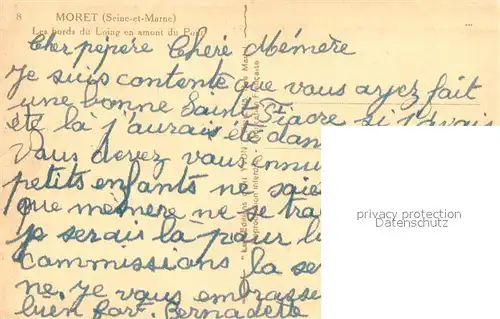 8 MORET (Seine-et-Marne)
Les bords du Loing en amont du Pont
Cher pépère Chère Mémère
Je suis contente que vous ayez fait
une bonne Saint Fiacre si j'avais
été là j'aurais été dan
Vous devez vous ennu
petits enfants ne soie
que mémère ne se tra
je serait la pour l
commissions la se
ne. Je vous embrasse
bien fort. Bernadette
privacy protection
Datenschutz